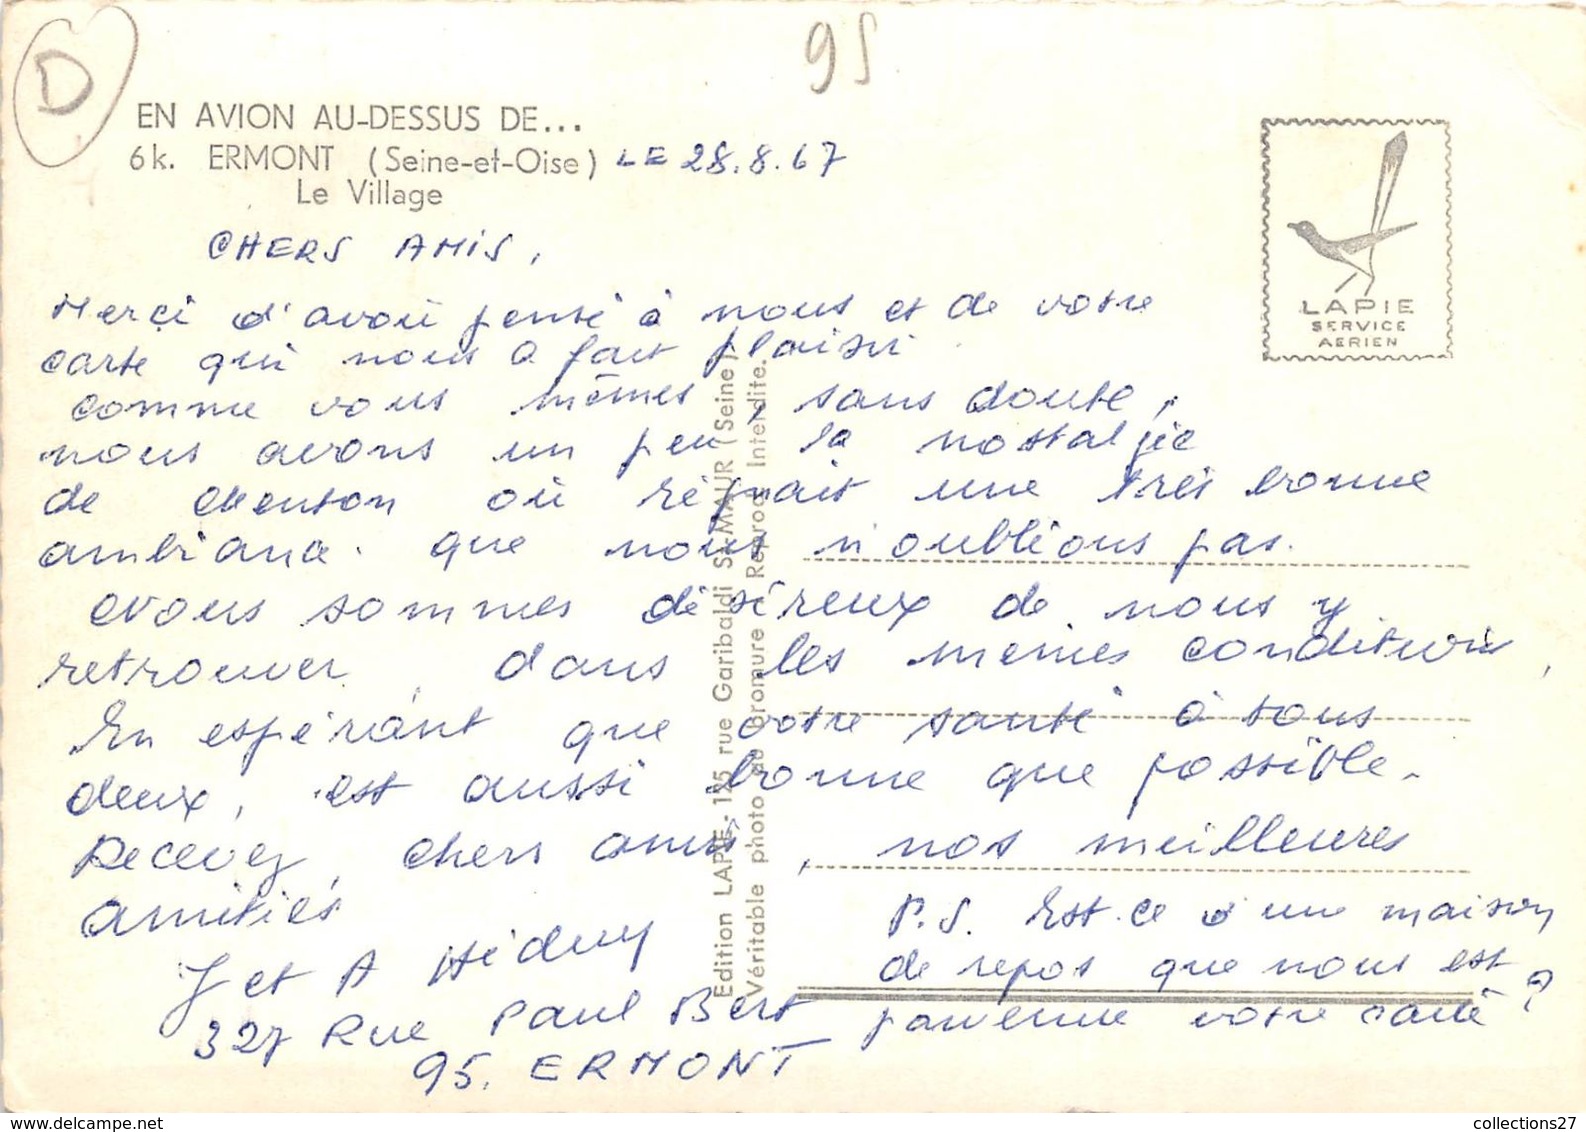 D
95
EN AVION AU-DESSUS DE...
6k. ERMONT (Seine-et-Oise) LE 28.8.67
Le Village
LAPIE
SERVICE
AERIEN
CHERS AMIS,
Merci d'avoir pensé à nous et de votre
carte qui nous a fait plaisir.
comme vous mêmes, sans doute,
nous avons un peu la nostalgie
de où régnait une très bonne
ambiance. que nous n'oublions pas.
nous sommes désireux de nous y
retrouver, dans les mêmes conditions,
En espérant que votre santé à tous
deux, est aussi bonne que possible.
Recevez, chers amis, nos meilleures
amitiés
J et A
327 Rue Paul Bert
95. ERMONT
P.S. Est-ce d'une maison
de repos que nous est
parvenue votre carte ?
Edition LAPIE - 125 rue Garibaldi St-MAUR (Seine)
Véritable photo au bromure Reprod. Interdite.
collections27